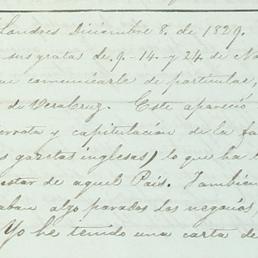 Londres Diciembre 8. de 1829.
sus grata de 9-14- y 24 de No
que comunicarle de particular,
de VeraCruz. Este apareció
rrota y capitulacion de la
s gazetas inglesas) lo que ha
estar de aquel Pais. Tambien
aban algo parados los negocios,
Yo he tenido una carta de